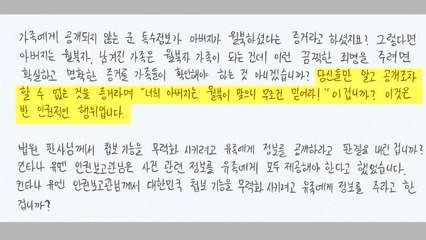 가족에게 공개되지 않는 군 특수정보가 아버지가 월북하셨다는 증거라고 하셨지요? 그렇다면
아버지는 월북자, 남겨진 가족은 월북자 가족이 되는 건데 이런 끔찍한 죄명을 주려면
확실하고 명확한 증거를 가족들이 확인해야 하는 것 아니겠습니까? 당신들만 알고 공개조차
할 수 없는 것을 증거라며 "너희 아버지는 월북이 맞으니 무조건 믿어라!" 이 겁니까? 이것은
반 인권적인 행위입니다.
법원 판사님께서 첩보 기능을 무력화 시키려고 유족에게 정보를 공개하라고 판결을 내린 겁니까?
킨타나 유엔 인권보고관님은 사건 관련 정보를 유족에게 모두 제공해야 한다고 했었습니다.
킨타나 유엔 인권보고관님께서 대한민국 첩보 기능을 무력화 시키려고 유족에게 정보를 주라고 한
겁니까?